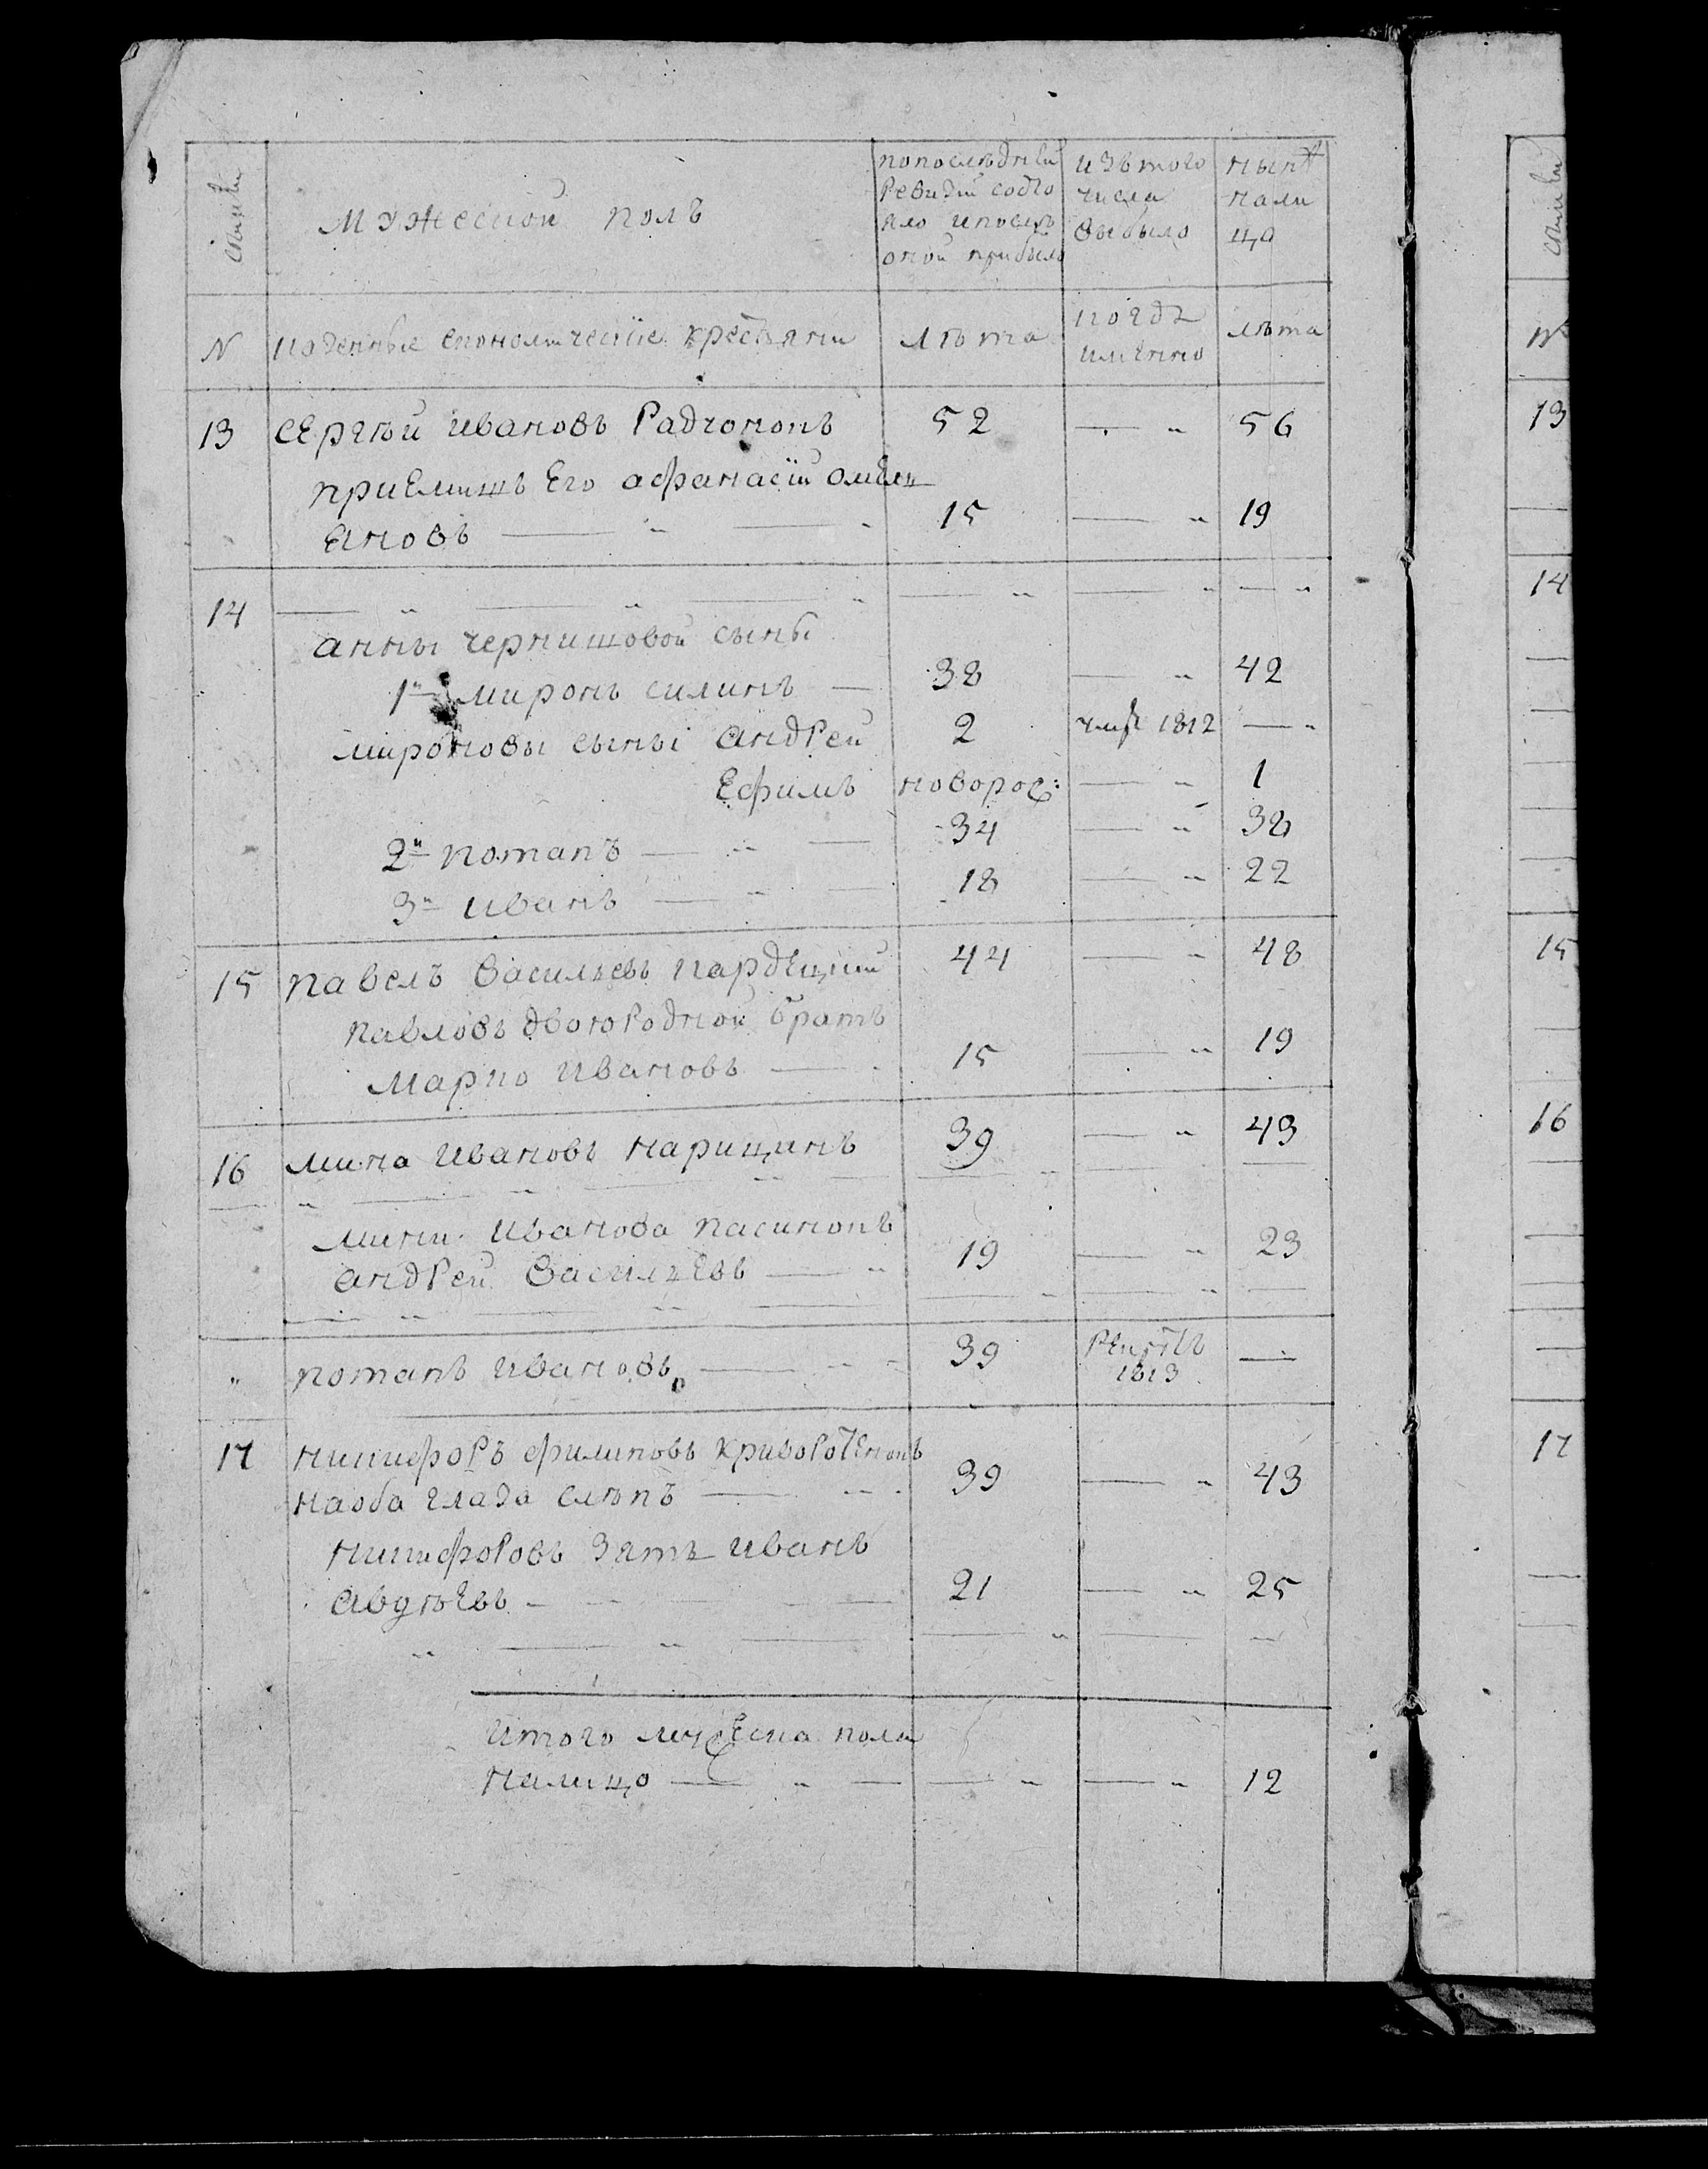 семьи
мужеской полъ
попоследней
Ревизии состо
яло ипослѣ
оной прибыло
изътого
числа
выбыло
нынѣ
нали
цо
семьи
N
казенные економические крестьяни
лѣта
когда
имянно
лѣта
N
13 Сергѣй Ивановъ Радчонокъ 52 — „ 56
13
приемишъ Его афанасiй омелъ
яновъ — „ — „ 15 — „ 19
14 — „ — „ — „ — „ — „ — „
14
анны чернишовой сыны
1й миронъ силинъ — 38 — „ 42
мироновы сыны андрей 2 умре 1812 — „
Ефимъ новорож: — „ 1
2й потапъ — „ — 34 — „ 38
3й иванъ — „ — 18 — „ 22
15 павелъ васильевъ 44 — „ 48
15
павловъ двоюродной братъ
марко ивановъ — „ 15 — „ 19
16 мина ивановъ нарицинъ 39 — „ 43
16
мини иванова пасинокъ
андрей васильевъ — „ 19 — „ 23
„ потапъ ивановъ — „ 39 рекрутъ
1813 —
17 никифоръ филиповъ криворотенокъ
17
наоба глаза слѣпъ — „ 39 — „ 43
никифоровъ зять иванъ
авдѣевъ — 21 — „ 25
„ — „ — — „ — „
итого мужеска пола
налицо — „ — — „ — „ 12